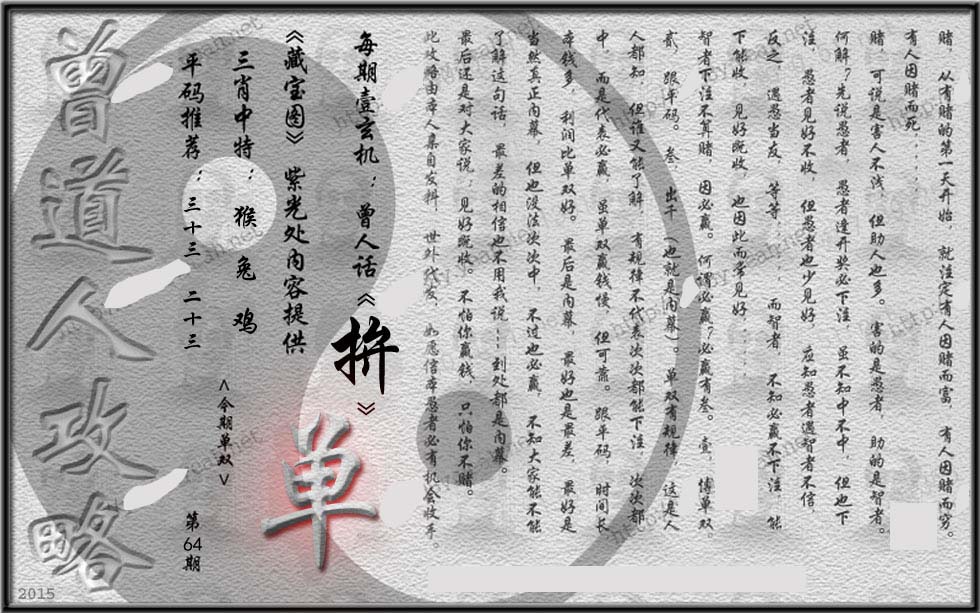 赌,从有赌的第一天开始,就注定有人因赌而富,有人因赌而穷。
有人因赌而死......
赌,可说是害人不浅,但助人也多。害的是愚者,助的是智者。
何解?先说愚者,愚者逢开奖必下注,虽不知中不中,但也下
注,愚者见好不收,但愚者也少见好,应知愚者遇智者不信,
反之,遇愁当友,等等......而智者,不知必赢不下注,能
下能收,见好既收,也因此而常见好......
智者下注不算赌,因必赢。何谓必赢?必赢有叁。壹,博单双,
贰,跟平码。叁,出千(也就是内幕)。单双有规律,这是人
人都知,但谁又能了解,有规律不代表次次都能下注,次次都
中,而是代表必赢,虽单双赢钱慢,但可靠。跟平码,时间长
本钱多,利润比单双好。最后是内幕,最好也是最差,最好是
当然真正内幕,但也没法次次中,不过也必赢,不知大家能不能
了解这句话,最差的相信也不用我说...到处都是内幕。
最后还是对大家说:见好既收。不怕你赢钱,只怕你不赌。
此攻略由本人集自发辩,世外代发,如愿信本愚者必有机会收手。
每期壹玄机:曾人话《拚》
《藏宝图》紫光处内容提供
单
三肖中特:猴 兔 鸡
<今期单双>
平码推荐:三十三 二十三
第64期
曾道人攻略
2015